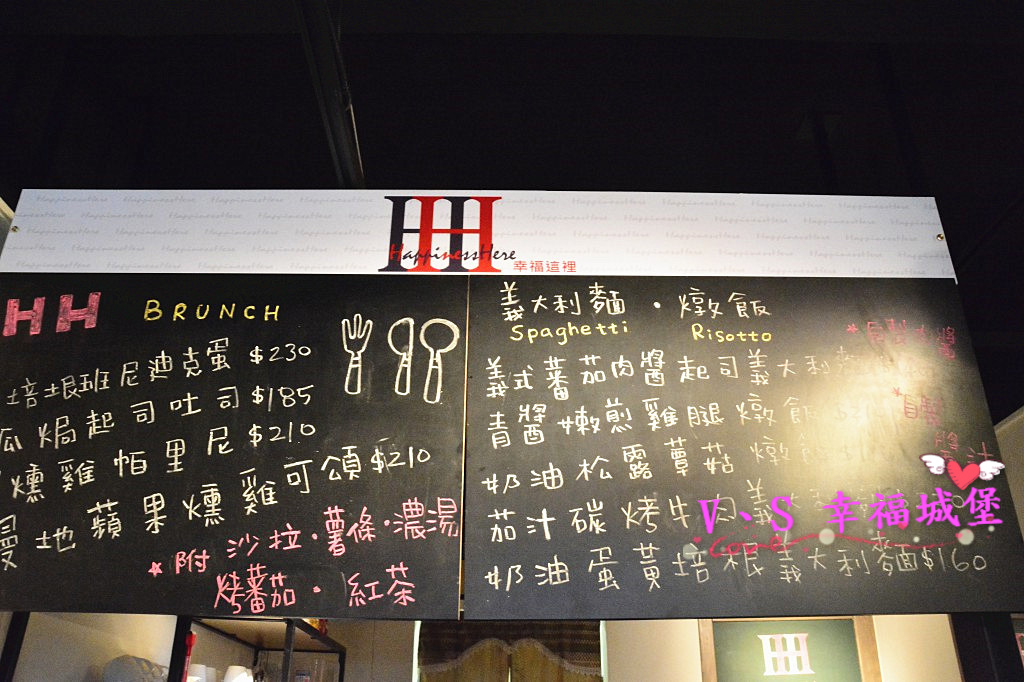 HH
HappinessHere
幸福這裡
HH BRUNCH
培垠班尼迪克蛋 $230
瓜焗起司吐司 $185
燻雞帕里尼 $210
曼地蘋果燻雞可頌 $210
*附 沙拉·薯條·濃湯
烤蕃茄·紅茶
義大利麵·燉飯
Spaghetti Risotto
*自製大醬
義式蕃茄肉醬起司義大利
*自製
青醬嫩煎雞腿燉飯
醬汁
奶油松露蕈菇燉
茄汁碳烤牛肉義
V、S 幸福城堡
Love
奶油蛋黃培根義大利麵 $160
HH